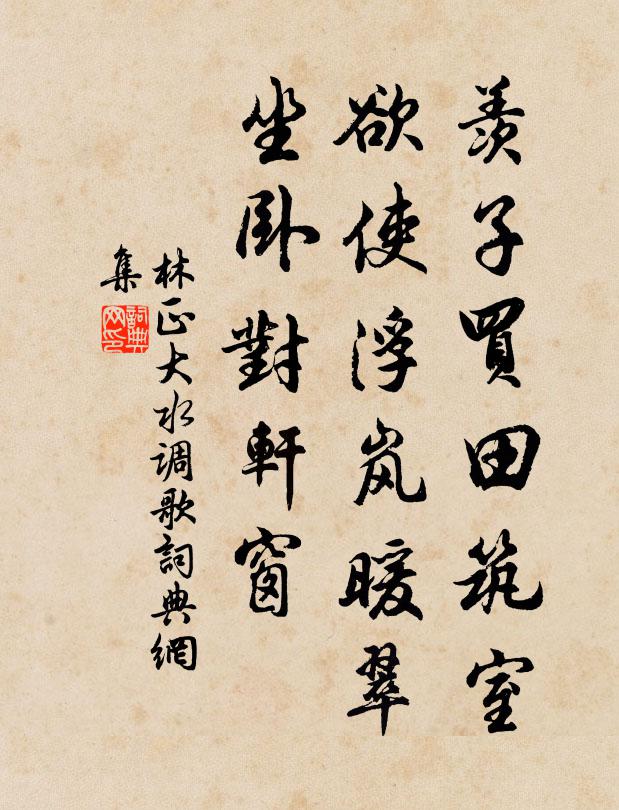 羨子買田筑室
欲使浮岚暖翠
坐卧對軒窗
林正大水调歌詞典網
集
詞典
网印